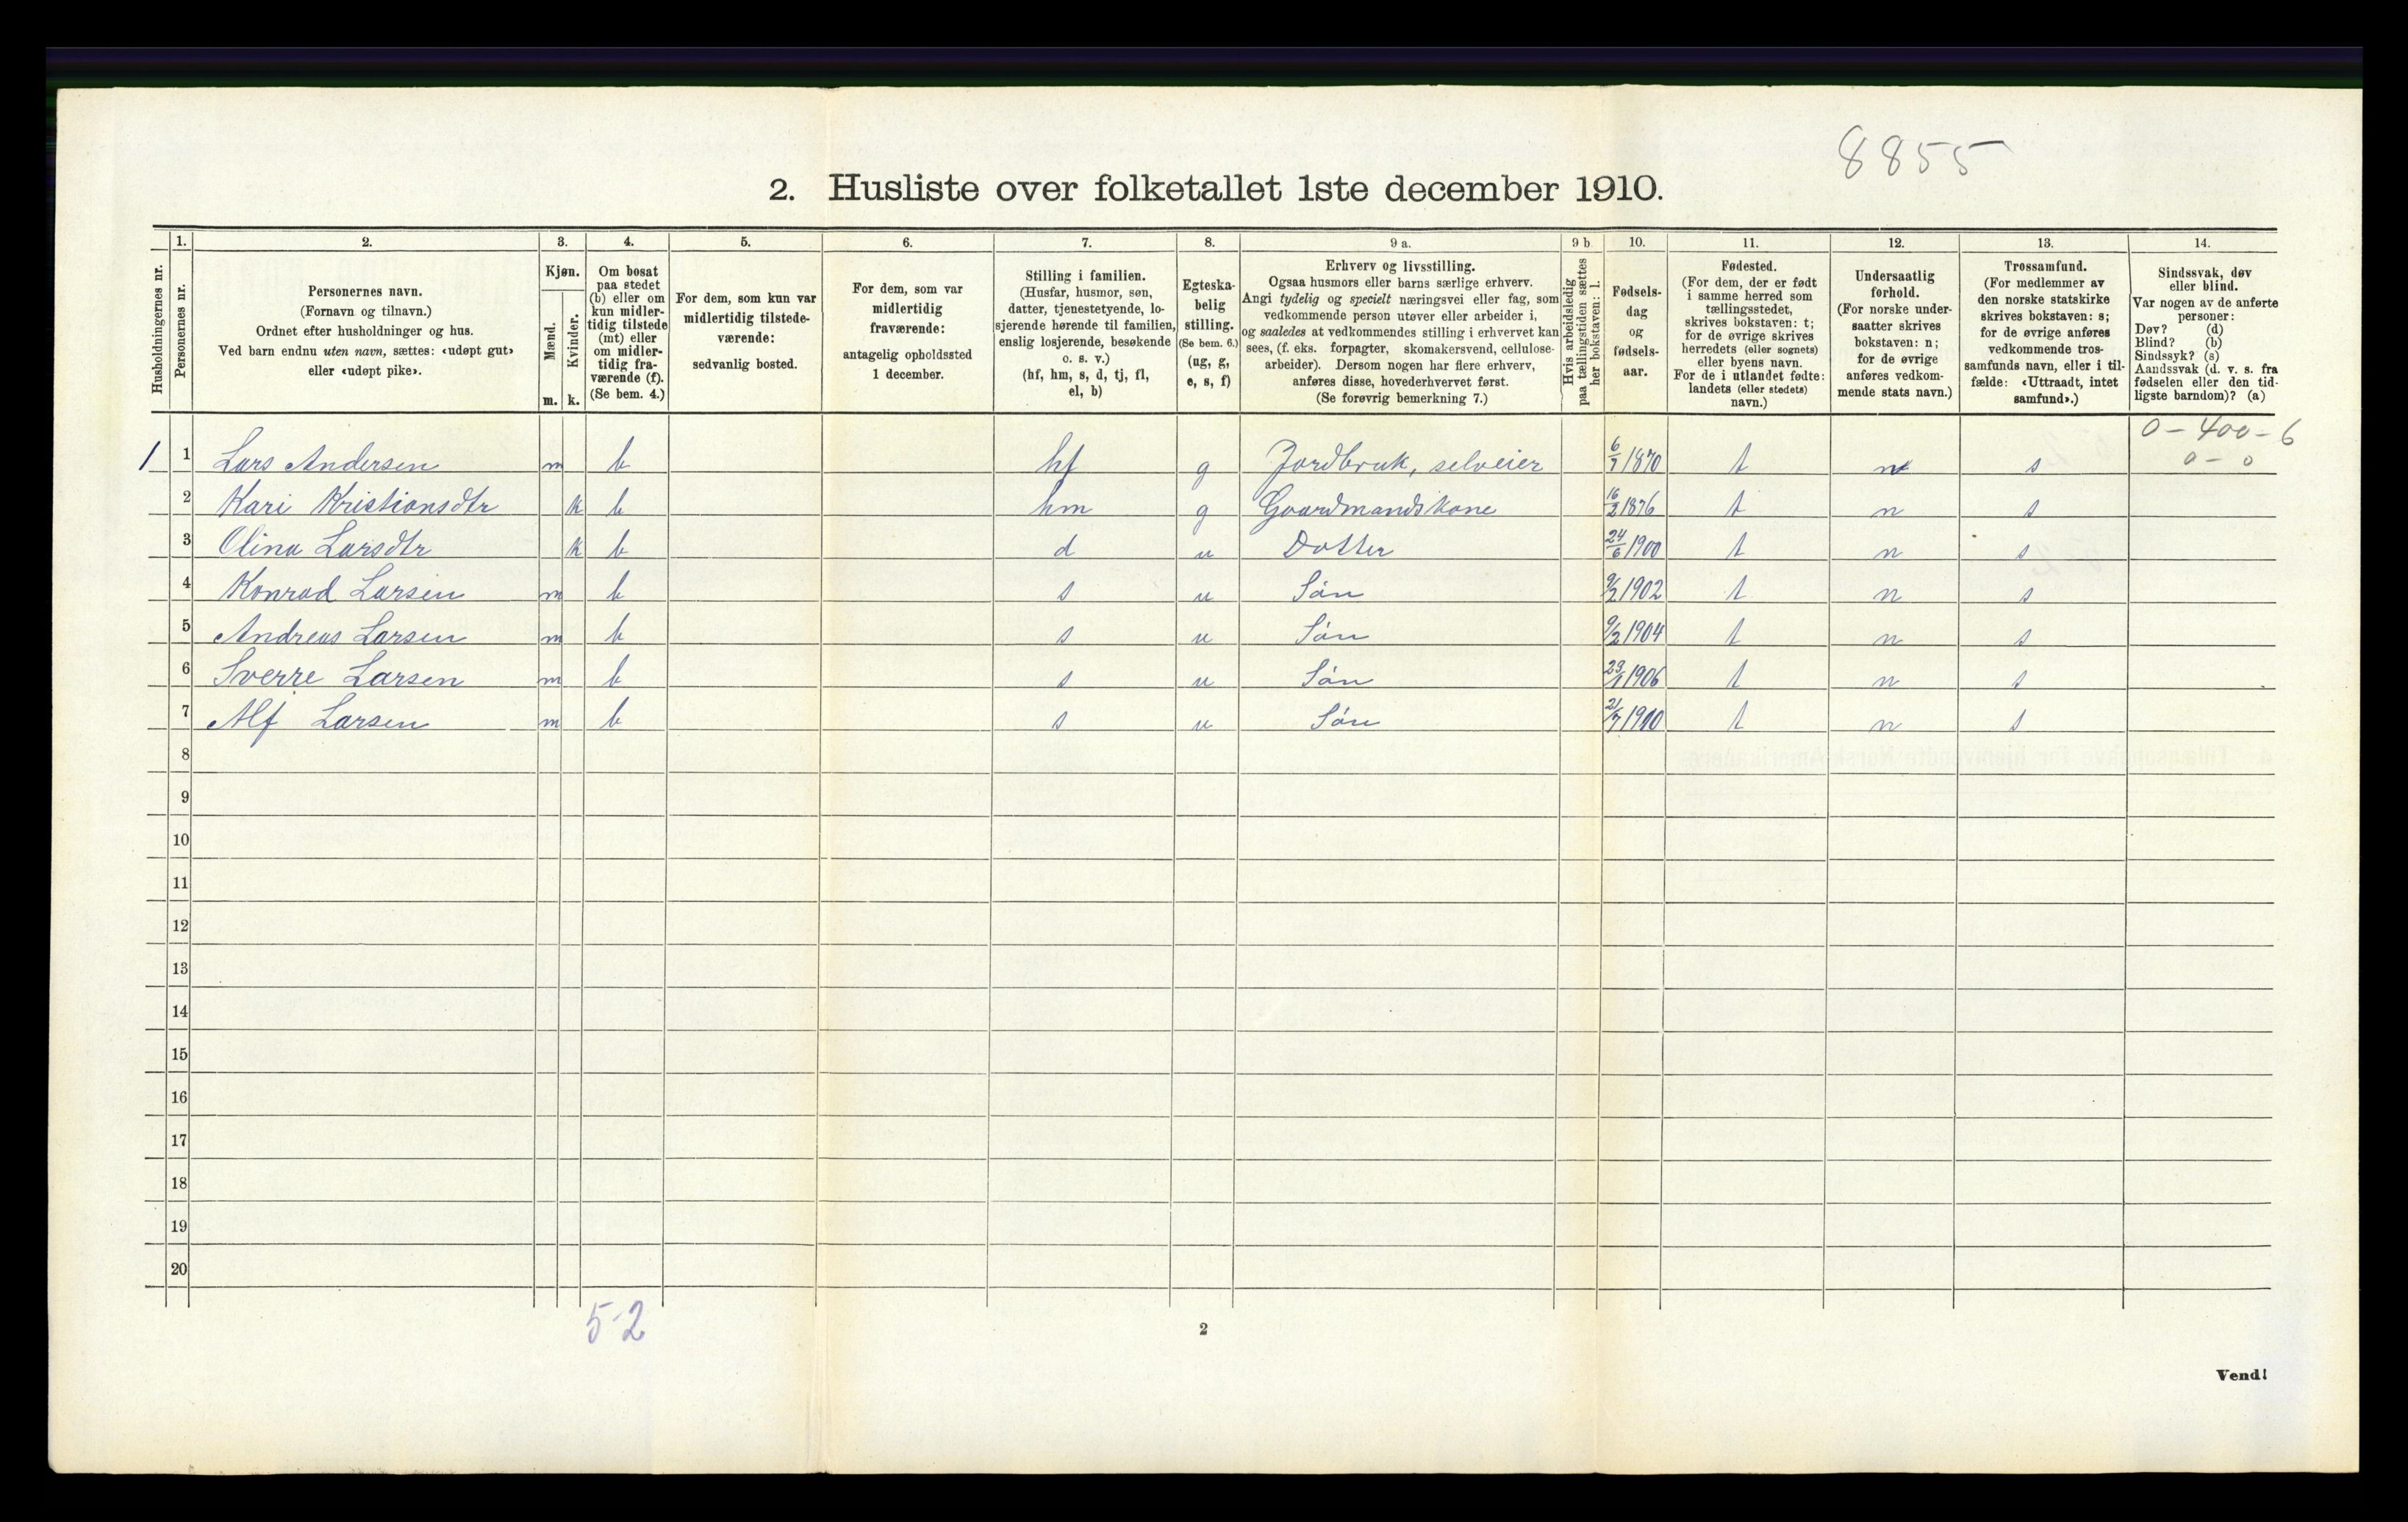 8855
2. Husliste over folketallet 1ste december 1910.
Husholdningernes nr.
1.
Personernes nr.
2.
Personernes navn.
(Fornavn og tilnavn.)
Ordnet efter husholdninger og hus.
Ved barn endnu uten navn, sættes: «udøpt gut»
eller «udøpt pike».
3.
Kjøn.
Mænd.
Kvinder.
m. k.
4.
Om bosat
paa stedet
(b) eller om
kun midler-
tidig tilstede
(mt) eller
om midler-
tidig fra-
værende (f).
(Se bem. 4.)
5.
For dem, som kun var
midlertidig tilstede-
værende:
sedvanlig bosted.
6.
For dem, som var
midlertidig
fraværende:
antagelig opholdssted
1 december.
7.
Stilling i familien.
(Husfar, husmor, søn,
datter, tjenestetyende, lo-
sjerende hørende til familien,
enslig losjerende, besøkende
o. s. v.)
(hf, hm, s, d, tj, fl,
el, b)
8.
Egteska-
belig
stilling.
(Se bem. 6.)
(ug, g,
e, s, f)
9 a.
Erhverv og livsstilling.
Ogsaa husmors eller barns særlige erhverv.
Angi tydelig og specielt næringsvei eller fag, som
vedkommende person utøver eller arbeider i,
og saaledes at vedkommendes stilling i erhvervet kan
sees, (f. eks. forpagter, skomakersvend, cellulose-
arbeider). Dersom nogen har flere erhverv,
anføres disse, hovederhvervet først.
(Se forøvrig bemerkning 7.)
9 b
Hvis arbeidsledig
paa tællingstiden sættes
her bokstaven: l.
10.
Fødsels-
dag
og
fødsels-
aar.
11.
Fødested.
(For dem, der er født
i samme herred som
tællingsstedet,
skrives bokstaven: t;
for de øvrige skrives
herredets (eller sognets)
eller byens navn.
For de i utlandet fødte:
landets (eller stedets)
navn.)
12.
Undersaatlig
forhold.
(For norske under-
saatter skrives
bokstaven: n;
for de øvrige
anføres vedkom-
mende stats navn.)
13.
Trossamfund.
(For medlemmer av
den norske statskirke
skrives bokstaven: s;
for de øvrige anføres
vedkommende tros-
samfunds navn, eller i til-
fælde: «Uttraadt, intet
samfund».)
14.
Sindssvak, døv
eller blind.
Var nogen av de anførte
personer:
Døv? (d)
Blind? (b)
Sindssyk? (s)
Aandssvak (d. v. s. fra
fødselen eller den tid-
ligste barndom)? (a)
0-400-6
0-0
1 1 Lars Andersen m b hf g Jordbruk, selveier 6/7 1870 t n s
2 Kari Kristiansdtr k b hm g Gaardmandskone 16/2 1876 t n s
3 Olina Larsdtr k b d u Datter 24/6 1900 t n s
4 Konrad Larsen m b s u Søn 9/2 1902 t n s
5 Andreas Larsen m b s u Søn 9/2 1904 t n s
6 Sverre Larsen m b s u Søn 23/1 1906 t n s
7 Alf Larsen m b s u Søn 21/7 1910 t n s
8
9
10
11
12
13
14
15
16
17
18
19
20
5-2
2
Vend!